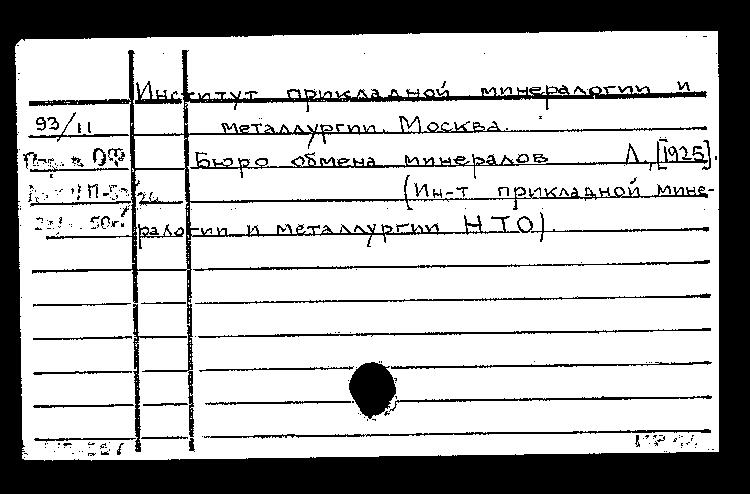 Институт прикладной минералогии и
93/11 металлургии. Москва.
Бюро обмена минералов Л., [1925].
(Ин-т прикладной мине-
ралогии и металлургии НТО).